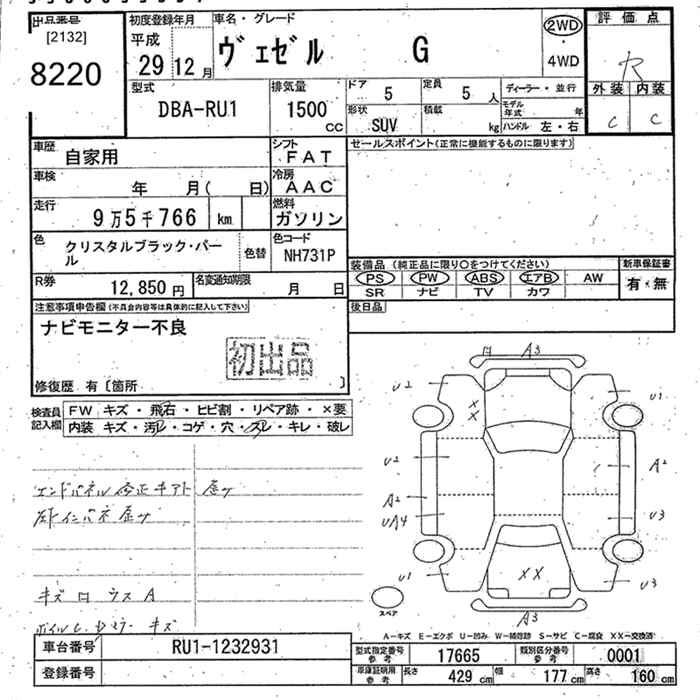 出品番号
[2132]
8220
初度登録年月
平成
29 12月
車名・グレード
ヴェゼル G
2WD
・
4WD
評価点
R
外装 内装
C C
型式
DBA-RU1
排気量
1500 CC
ドア 5
定員 5 人
形状 SUV
積載 kg
ディーラー・並行
モデル年式 年
ハンドル 左・右
車歴 自家用
シフト FAT
車検 年 月( 日)
冷房 AAC
走行 9万5千766 km
燃料 ガソリン
色 クリスタルブラック・パール
色替
色コード NH731P
R券 12,850円
名変通知期限 月 日
セールスポイント(正常に機能するものに限ります)
装備品 (純正品に限り○をつけてください)
新車保証書
PS PW ABS エアB AW
SR ナビ TV カワ
有・無
後日品
注意事項申告欄(不具合内容等は具体的に記入して下さい)
ナビモニター不良
初出品
修復歴 有〔箇所 〕
検査員記入欄
FW キズ・飛石・ヒビ割・リペア跡・×要
内装 キズ・汚レ・コゲ・穴・スレ・キレ・破レ
エンドパネル修正キアト 歪サ
キズ ロ ウス A
A3
U2
U1
X
X
U2
A2
A2
UA4
U3
U1
XX
U3
A3
スペア
A-キズ E-エクボ U-凹み W-補修跡 S-サビ C-腐食 XX-交換済
車台番号 RU1-1232931
登録番号
型式指定番号 参考 17665
類別区分番号 参考 0001
車庫証明用 参考 長さ 429cm 幅 177cm 高さ 160cm